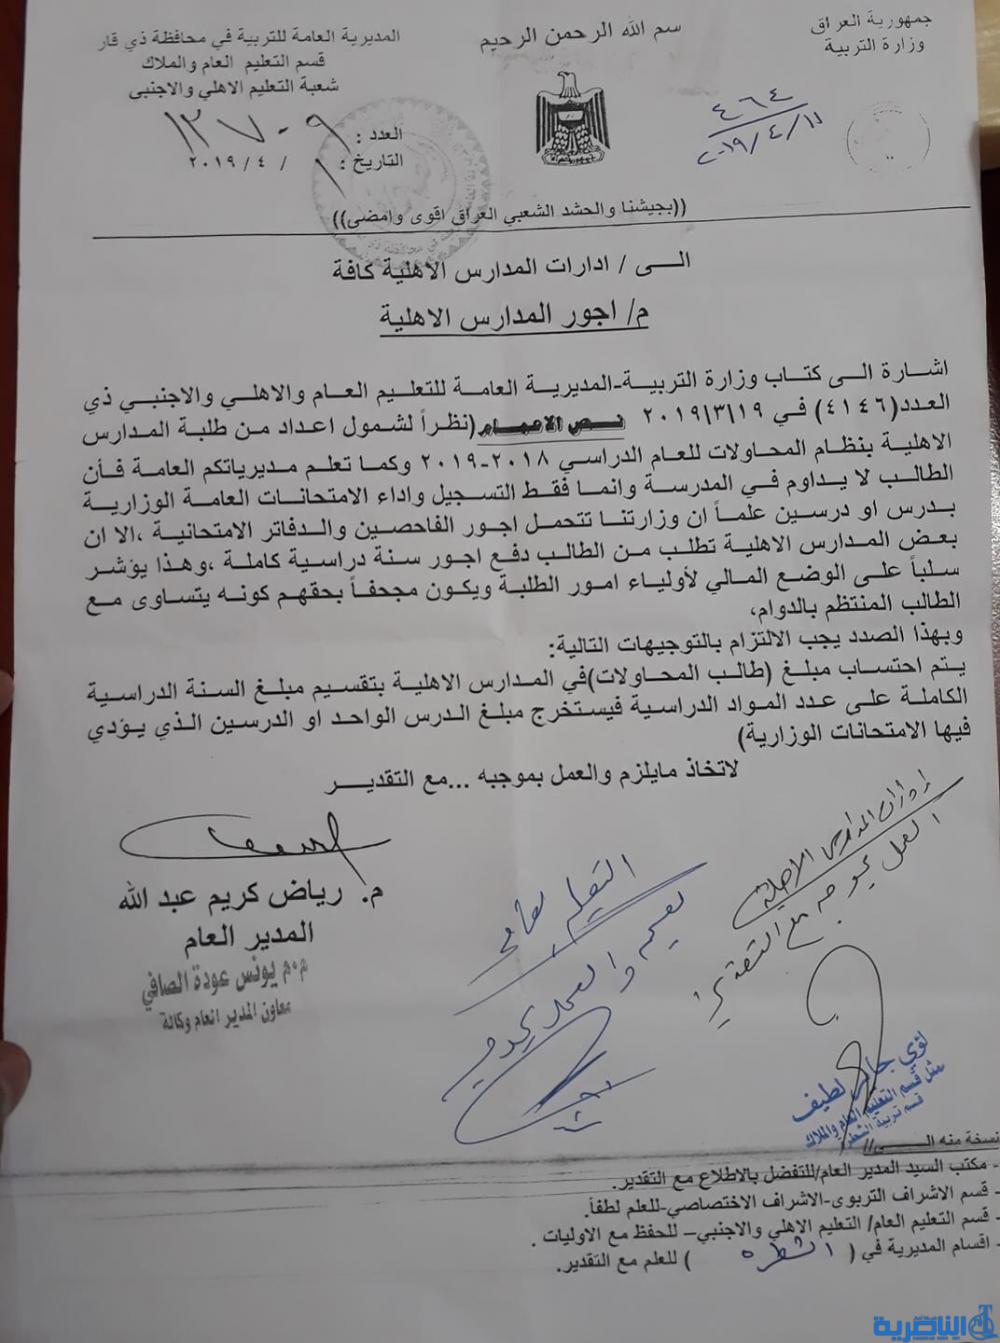 جمهورية العراق
وزارة التربية
سم الله الرحمن الرحيم
المديرية العامة للتربية في محافظة ذي قار
قسم التعليم العام والملاك
شعبة التعليم الاهلي والاجنبي
العدد : ١٢٧٠٩
التاريخ : ٩ / ٤ / ٢٠١٩
٤٦٤
٢٠١٩/٤/١١
((بجيشنا والحشد الشعبي العراق اقوى وامضى))
الـــى / ادارات المدارس الاهلية كافة
م/ اجور المدارس الاهلية
اشارة الى كتاب وزارة التربية-المديرية العامة للتعليم العام والاهلي والاجنبي ذي
العدد(٤١٤٦) في ٢٠١٩/٣/١٩ نص الاعمام (نظراً لشمول اعداد من طلبة المدارس
الاهلية بنظام المحاولات للعام الدراسي ٢٠١٨-٢٠١٩ وكما تعلم مديرياتكم العامة فأن
الطالب لا يداوم في المدرسة وانما فقط التسجيل واداء الامتحانات العامة الوزارية
بدرس او درسين علماً ان وزارتنا تتحمل اجور الفاحصين والدفاتر الامتحانية ،الا ان
بعض المدارس الاهلية تطلب من الطالب دفع اجور سنة دراسية كاملة ،وهذا يؤشر
سلباً على الوضع المالي لأولياء امور الطلبة ويكون مجحفاً بحقهم كونه يتساوى مع
الطالب المنتظم بالدوام،
وبهذا الصدد يجب الالتزام بالتوجيهات التالية:
يتم احتساب مبلغ (طالب المحاولات)في المدارس الاهلية بتقسيم مبلغ السنة الدراسية
الكاملة على عدد المواد الدراسية فيستخرج مبلغ الدرس الواحد او الدرسين الذي يؤدي
فيها الامتحانات الوزارية)
لاتخاذ مايلزم والعمل بموجبه ...مع التقديـــر
م. رياض كريم عبد الله
المدير العام
م.م يونس عودة الصافي
معاون المدير العام وكالة
ادارات المدارس الاهلية
العمل بموجبه مع التقدير
لؤي جابر لطيف
ممثل قسم التعليم العام والملاك
قسم تربية الشطرة
نسخة منه الـــى//
- مكتب السيد المدير العام/للتفضل بالاطلاع مع التقدير.
- قسم الاشراف التربوي-الاشراف الاختصاصي-للعلم لطفاً.
- قسم التعليم العام/ التعليم الاهلي والاجنبي– للحفظ مع الاوليات .
- اقسام المديرية في ( الشطره ) للعلم مع التقدير.
الناصرية